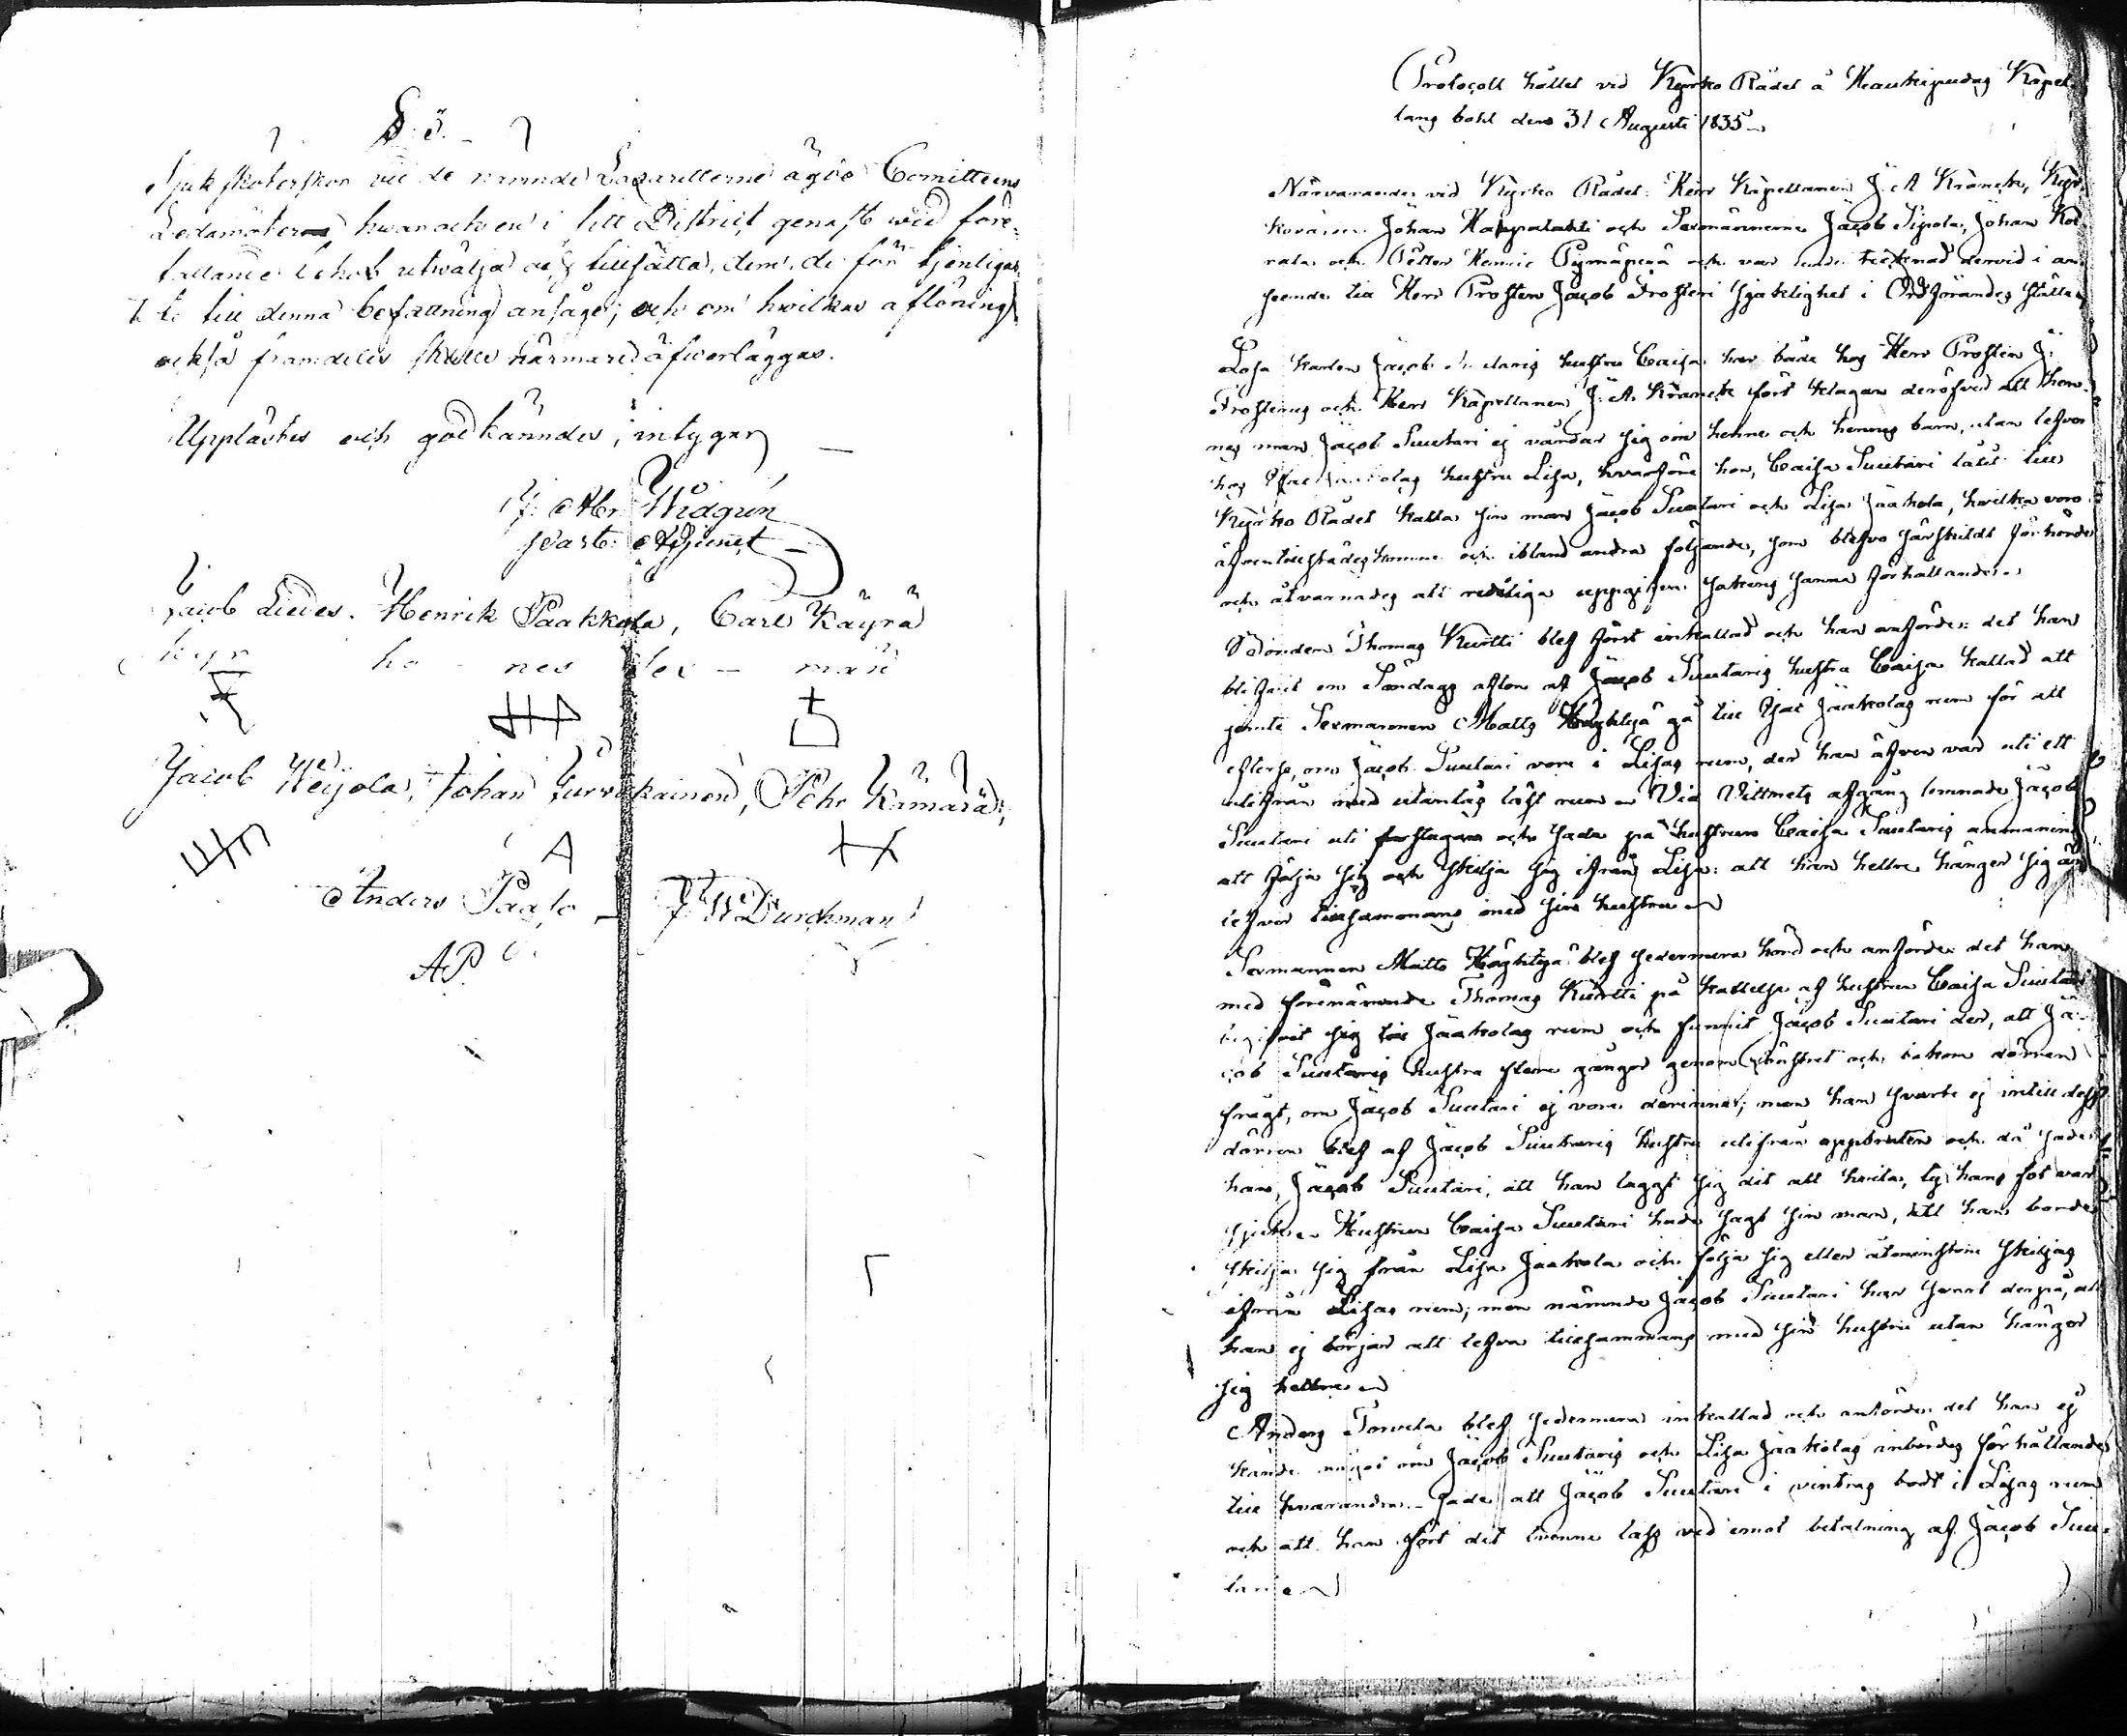 §. 3.
Sjukskoterskor vid de nämnde Lazaretterne ägde Comitteens
Ledamöter hwar och en i sitt District genast wid före-
fallande behof utwälja och tillsätta, dem de för tjenligas-
te till denna befattning ansågo; och om hwilkas aflöning
också framdeles skulle närmare öfwerläggas.
Upplästes och godkänndes, intygar
J. Abr. Widgrén
Past. Adjunct
Jacob Liedes. Henrik Paakkola, Carl Käyrä
kyr ko nes sex - män
Jacob Weijola, Johan Turwakainen, Pehr Kämärä,
Anders Paaso J. W. Durchman
AP
Protocoll hållet vid Kyrko Rådet å Haukipudas Kapel-
lans bohl den 31 Augusti 1835
Närvarande vid Kyrko Rådet: Herr Kapellanen J. A. Kranck, Kyr-
ko Johan Haapalahti och Sexmännerne Jacob Sipola, Johan Kol-
och Petter Henric Pymäperä och var undertecknad dervid i an-
seende till Herr Prosten Jacob Frosteri sjuklighet i Ordförandes ställe
Lösa karlen Jacob Suutaris hustru Caisa har både hos Herr Prosten J.
Frosterus och Herr Kapellanen J. A. Kranck fört klagan deröfver att hen-
nes man Jacob Suutari ej vårdar sig om henne och hennes barn, utan lefver
hos Isac Jaakolas hustru Lisa, hvarföre hon, Caisa Suutari låtit till
Kyrko Rådet kalla sin man Jacob Suutari och Lisa Jaakola, hvilka voro
äfven tillstädeskomne och ibland andra följande, som blefvo särskildt förhörde
och åtvarnades att redeligen uppgifva sakens sanna förhållande.
Bonden Thomas Kurtti blef först inkallad och han anförde: det han
blifvit en Söndags afton af Jacob Suutaris hustru Caisa kallad att
jemte Sexmannen Matts gå till Isac Jaakolas rum för att
efterse, om Jacob Suutari vore i Lisas rum, der han äfven var uti ett
utifrån med utanlås låst rum. Vid Vittnets afgång lemnade Jacob
Suutari uti och sade på hustrun Caisa Suutaris anmaning
att följa sig och skilja sig ifrån Lisa: att han hellre hänger sig än
lefver tillsammans med sin hustru
Sexmannen Matts blef sedermera hörd och anförde: det han
med förenämnde Thomas Kurtti på kallelse af hustrun Caisa Suutari
begifvit sig till Jaakolas rum och funnit Jacob Suutari der, att Ja-
cob Suutaris hustru flere gånger genom fönstret och bakom dörren
frågt, om Jacob Suutari ej vore derinne; men han svarte ej intill dess
dörren blef af Jacob Suutaris hustru utifrån uppbruten och då sade
han, Jacob Suutari, att han laggt sig dit att hvila, ty hans fot var
sjuk. Hustrun Caisa Suutari hade sagt sin man, att han borde
skilja sig från Lisa Jaakola och följa sig eller åtminstone skiljas
ifrån Lisas rum; men nämnde Jacob Suutari har svart derpå, att
han ej börjar att lefva tillsammans med sin hustru utan hänger
sig hellre
Anders Torvela blef sedermera inkallad och anförde: det han ej
kände något om Jacob Suutaris och Lisa Jaakolas inbördes förhållande
till hvarandra. Sade att Jacob Suutari i vintras bodt i Lisas rum
och att han fört dit tvenne lass ved emot betalning af Jacob Suu-
tari